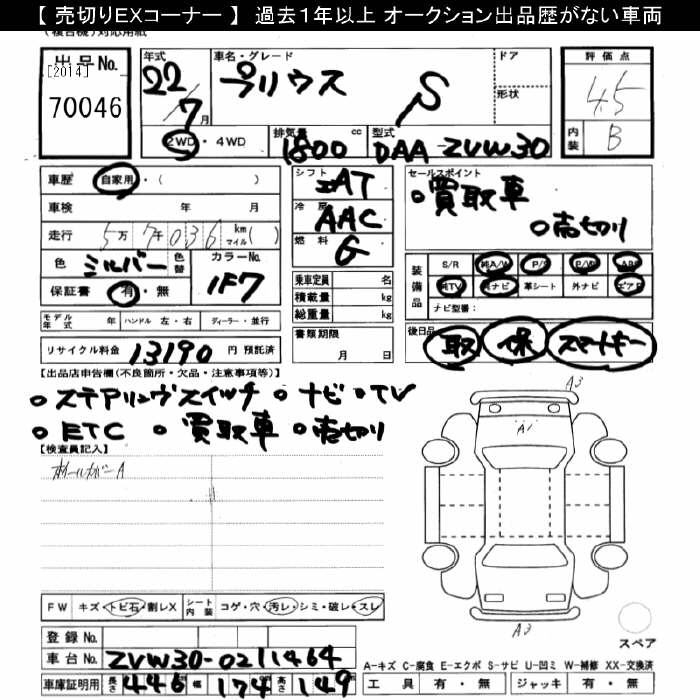 【 売切りEXコーナー 】 過去１年以上 オークション出品歴がない車両
(複合機)対応用紙
出品No.
[2014]
70046
年式
22
7月
車名・グレード
プリウス S
ドア
形状
評価点
4.5
内装 B
2WD・4WD
排気量 1800 cc
型式 DAA-ZVW30
車歴 自家用・( )
車検 年 月
走行 5万7千036 km マイル( )
色 シルバー 色替 カラーNo. 1F7
保証書 有・無
シフト IAT
冷房 AAC
燃料 G
乗車定員 名
積載量 kg
総重量 kg
セールスポイント
○買取車
○売切り
装備品 S/R 純A/W P/S P/W ABS
純TV 純ナビ 革シート 外ナビ エアB
ナビ型番:
モデル年式 年 ハンドル 左・右 ディーラー・並行
リサイクル料金 13190 円 預託済
書類期限
月 日
後日品 取 保 スマートキー
【出品店申告欄(不良箇所・欠品・注意事項等)】
○ステアリングスイッチ ○ナビ ○TV
○ETC ○買取車 ○売切り
【検査員記入】
ホイールカバーA
A3
A1
A3
スペア
FW キズ・トビ石・割レX シート内装 コゲ・穴・汚レ・シミ・破レ・スレ
登録No.
車台No. ZVW30-0211464
車庫証明用 長さ 446 幅 174 高さ 149
A-キズ C-腐食 E-エクボ S-サビ U-凹ミ W-補修 XX-交換済
工具 有・無 ジャッキ 有・無